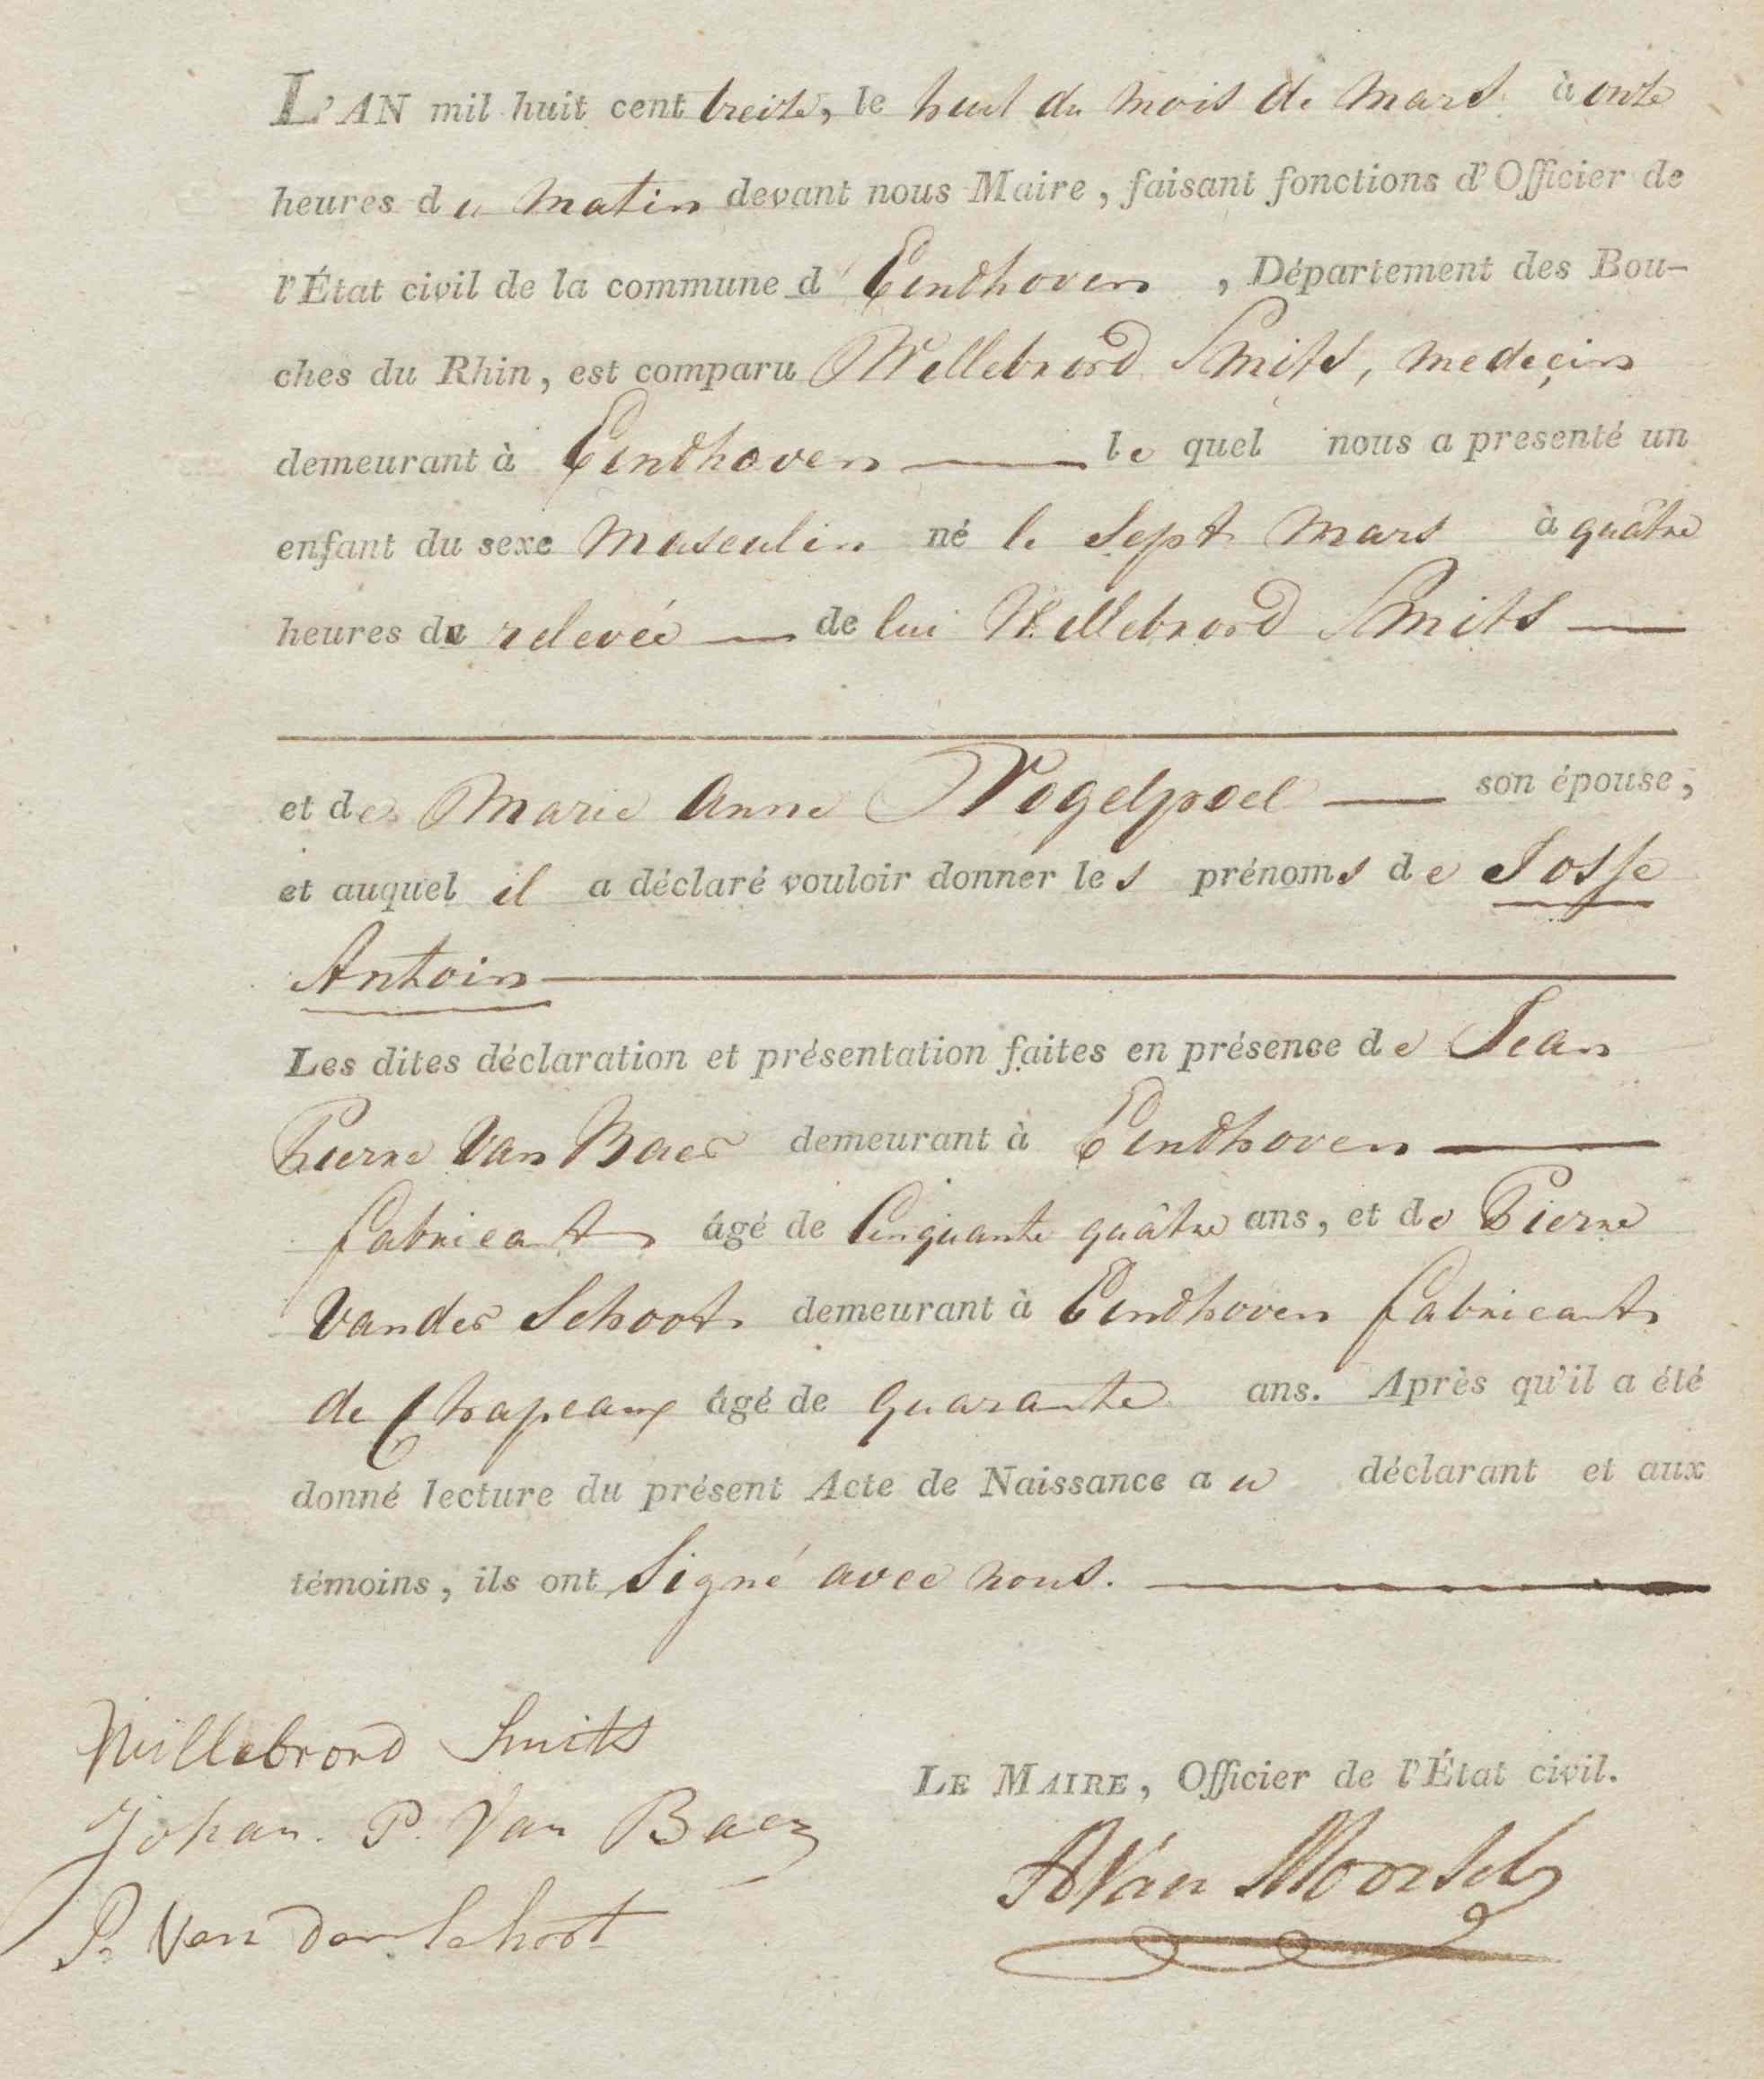 L'AN mil huit cent treize, le huit du mois de Mars à onze
heures du Matin devant nous Maire, faisant fonctions d'Officier de
l'État civil de la commune d'Eindhoven, Département des Bou-
ches du Rhin, est comparu Willebrord Smits, medeçin
demeurant à Eindhoven — le quel nous a presenté un
enfant du sexe Masculin né le Sept Mars à quâtre
heures de relevée — de lui Willebrord Smits —
et de Marie Anne Vogelpoel — son épouse,
et auquel il a déclaré vouloir donner les prénoms de Josse
Antoin —
Les dites déclaration et présentation faites en présence de Jean
Pierre Van Baer demeurant à Eindhoven —
fabricant âgé de Cinquante quâtre ans, et de Pierre
Vander Schoot demeurant à Eindhoven fabricant
de Chapeaux âgé de quarante ans. Après qu'il a été
donné lecture du présent Acte de Naissance au déclarant et aux
témoins, ils ont Signé avec nous. —
Willebrord Smits
LE MAIRE, Officier de l'État civil.
Johan. P. Van Baer
A Van Moorsel
P. Van Der Schoot